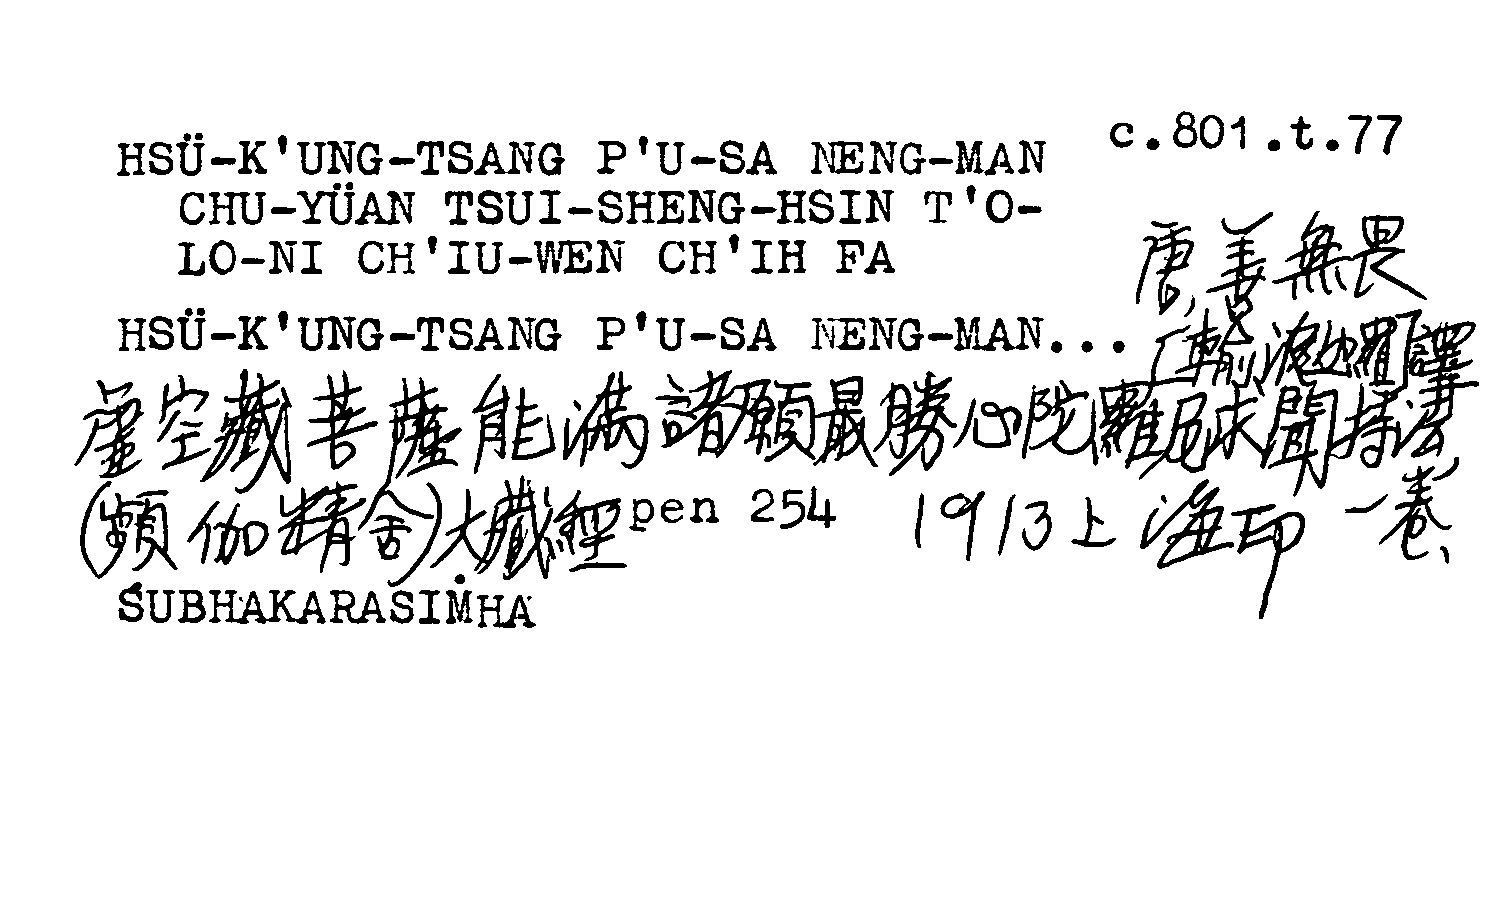 c.801.t.77
HSÜ-K'UNG-TSANG P'U-SA NENG-MAN
CHU-YÜAN TSUI-SHENG-HSIN T'O-
LO-NI CH'IU-WEN CH'IH FA
唐善無畏
HSÜ-K'UNG-TSANG P'U-SA NENG-MAN...
「輸波迦羅」譯
虛空藏菩薩能滿諸願最勝心陀羅尼求聞持法
(頻伽精舍)大藏經 pen 254 1913上海印 一卷、
ŚUBHAKARASIṀHA